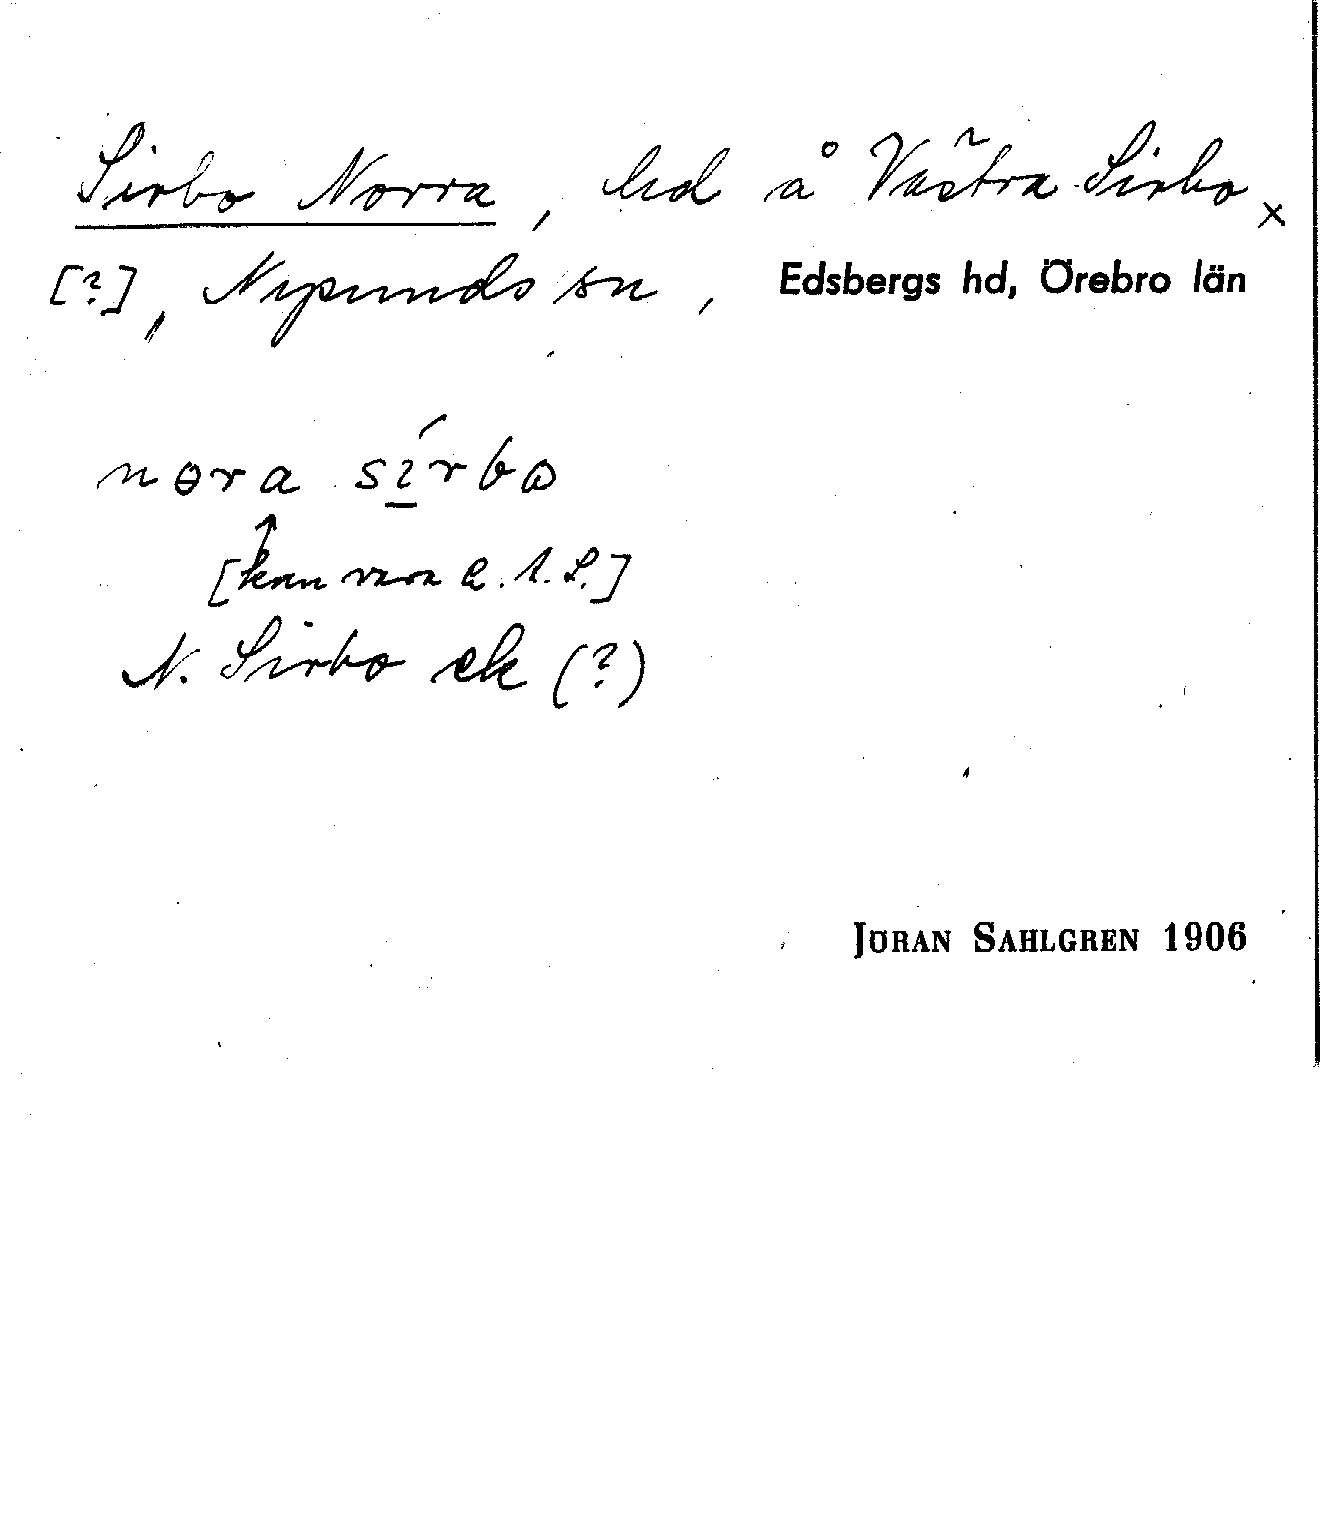 Sirbo Norra, hd å Västra Sirbo ×
[?], Nysunds sn, Edsbergs hd, Örebro län
nɵra sírbɷ
↑
[kan vara e. l. S.]
N. Sirbo ek (?)
JÖRAN SAHLGREN 1906